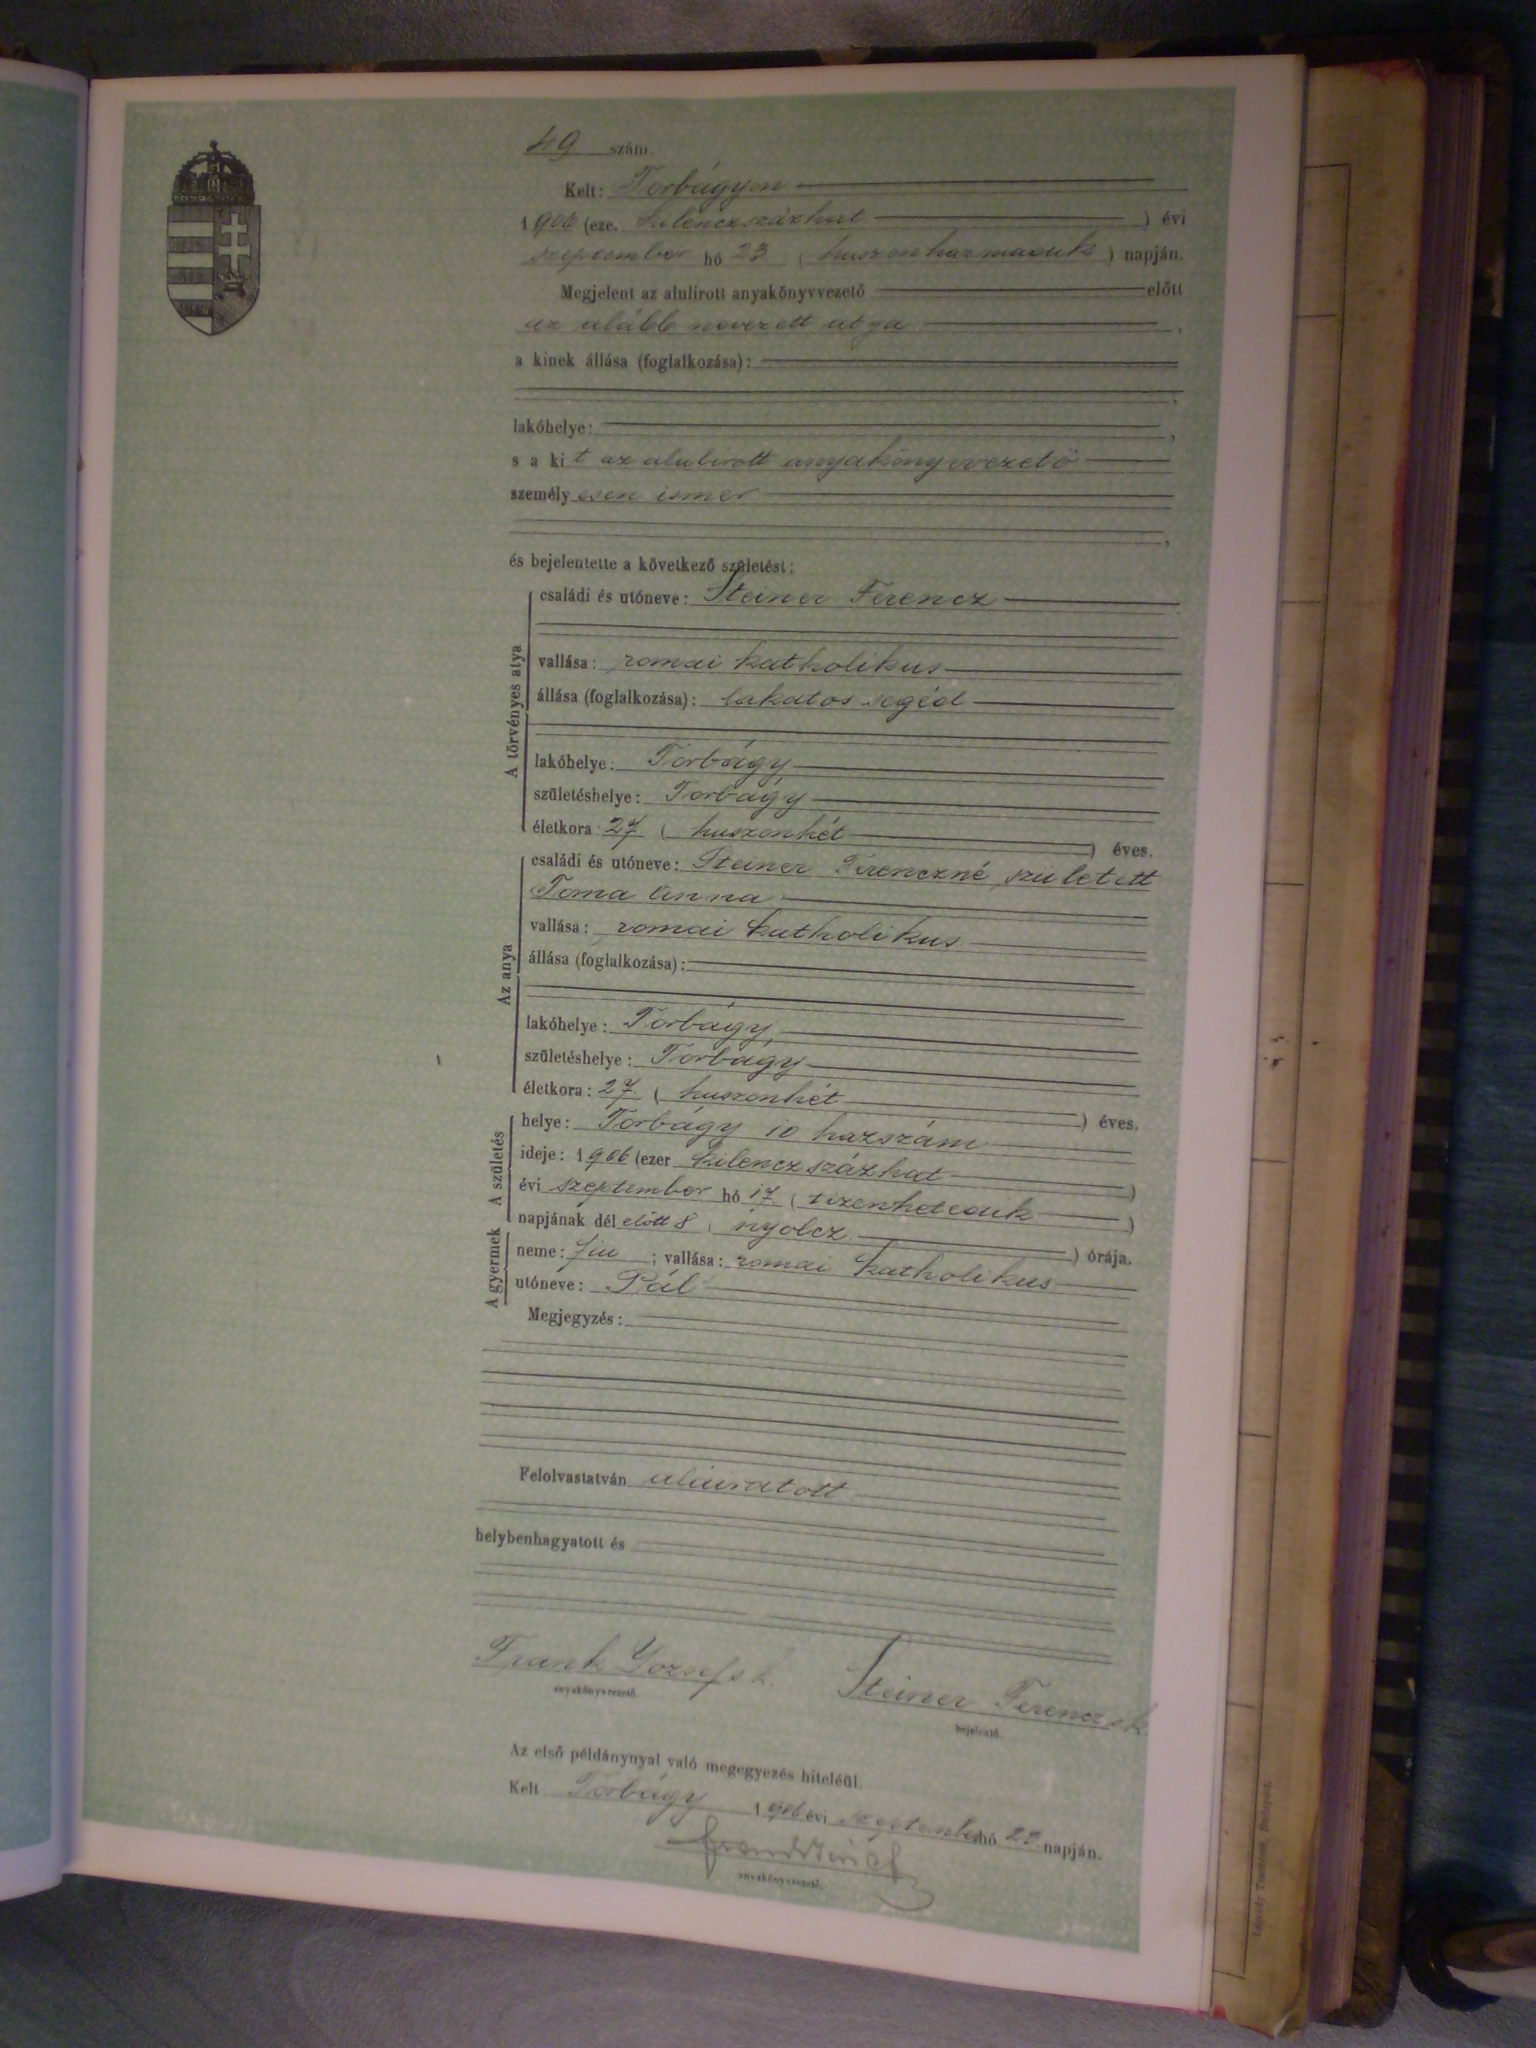 49 szám.
Kelt: Torbágyon
1906 (eze. kilenczszázhat ) évi
szeptember hó 23 ( huszonharmadik ) napján.
Megjelent az alulirott anyakönyvvezető előtt
az alább nevezett atya ,
a kinek állása (foglalkozása):
,
lakóhelye: ,
s a kit az alulirott anyakönyvvezető
személyesen ismer
,
és bejelentette a következő születést:
A törvényes atya
családi és utóneve: Steiner Ferencz
vallása: romai katholikus
állása (foglalkozása): lakatos segéd
lakóhelye: Torbágy
születéshelye: Torbágy
életkora: 27 ( huszonhét ) éves.
Az anya
családi és utóneve: Steiner Ferenczné született
Toma Anna
vallása: romai katholikus
állása (foglalkozása):
lakóhelye: Torbágy
születéshelye: Torbágy
életkora: 27. ( huszonhét ) éves.
A születés
helye: Torbágy 10 hazszám
ideje: 1906 (ezer kilenczszázhat )
évi szeptember hó 17. ( tizenhetedik )
napjának dél előtt 8 ( nyolcz ) órája.
A gyermek
neme: fiu ; vallása: romai katholikus
utóneve: Pál
Megjegyzés:
Felolvastatván aláiratott
helybenhagyatott és
Frank József s. k. Steiner Ferencz s. k.
anyakönyvvezető. bejelentő.
Az első példánynyal való megegyezés hiteléül.
Kelt Torbágy 1906 évi szeptember hó 23. napján.
anyakönyvvezető.